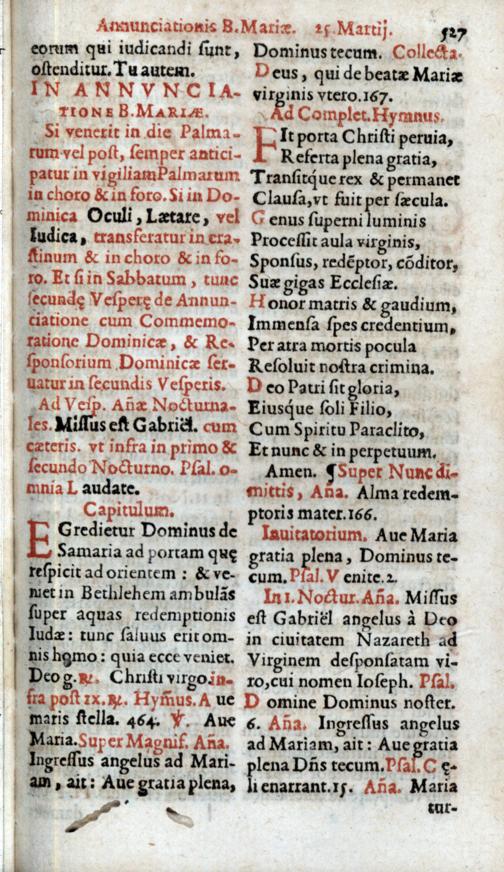 Annunciationis B. Mariæ. 25. Martij. 527
eorum qui iudicandi ſunt,
oſtenditur. Tu autem.
IN ANNVNCIA-
TIONE B. MARIÆ.
Si venerit in die Palma-
rum vel poſt, ſemper antici-
patur in vigiliam Palmarum
in choro & in foro. Si in Do-
minica Oculi, Lætare, vel
Iudica, transferatur in cra-
ſtinum & in choro & in fo-
ro. Et ſi in Sabbatum, tunc
ſecundę Veſperę de Annun-
ciatione cum Commemo-
ratione Dominicæ, & Re-
ſponſorium Dominicæ ſer-
uatur in ſecundis Veſperis.
Ad Veſp. Añæ Nocturna-
les. Miſſus eſt Gabriël. cum
cæteris. vt infra in primo &
ſecundo Nocturno. Pſal. o-
mnia Laudate.
Capitulum.
EGredietur Dominus de
Samaria ad portam quę
reſpicit ad orientem : & ve-
niet in Bethlehem ambulãs
ſuper aquas redemptionis
Iudæ: tunc ſaluus erit om-
nis homo: quia ecce veniet.
Deo g. ℟. Chriſti virgo. in-
fra poſt ix. ℟. Hym̃us. A ue
maris ſtella. 464. ℣. Aue
Maria. Super Magnif. Aña.
Ingreſſus angelus ad Mari-
am, ait: Aue gratia plena,
Dominus tecum. Collecta.
Deus, qui de beatæ Mariæ
virginis vtero. 167.
Ad Complet. Hymnus.
FIt porta Chriſti peruia,
Referta plena gratia,
Tranſitque rex & permanet
Clauſa, vt fuit per ſæcula.
Genus ſuperni luminis
Proceſſit aula virginis,
Sponſus, redẽptor, cõditor,
Suæ gigas Eccleſiæ.
Honor matris & gaudium,
Immenſa ſpes credentium,
Per atra mortis pocula
Reſoluit noſtra crimina.
Deo Patri ſit gloria,
Eiusque ſoli Filio,
Cum Spiritu Paraclito,
Et nunc & in perpetuum.
Amen. ¶ Super Nunc di-
mittis, Aña. Alma redem-
ptoris mater. 166.
Inuitatorium. Aue Maria
gratia plena, Dominus te-
cum. Pſal. V enite. 2.
In 1. Noctur. Aña. Miſſus
eſt Gabriël angelus à Deo
in ciuitatem Nazareth ad
Virginem deſponſatam vi-
ro, cui nomen Ioſeph. Pſal.
Domine Dominus noſter.
6. Aña. Ingreſſus angelus
ad Mariam, ait: Aue gratia
plena Dñs tecum. Pſal. C ę-
li enarrant. 15. Aña. Maria
tur-